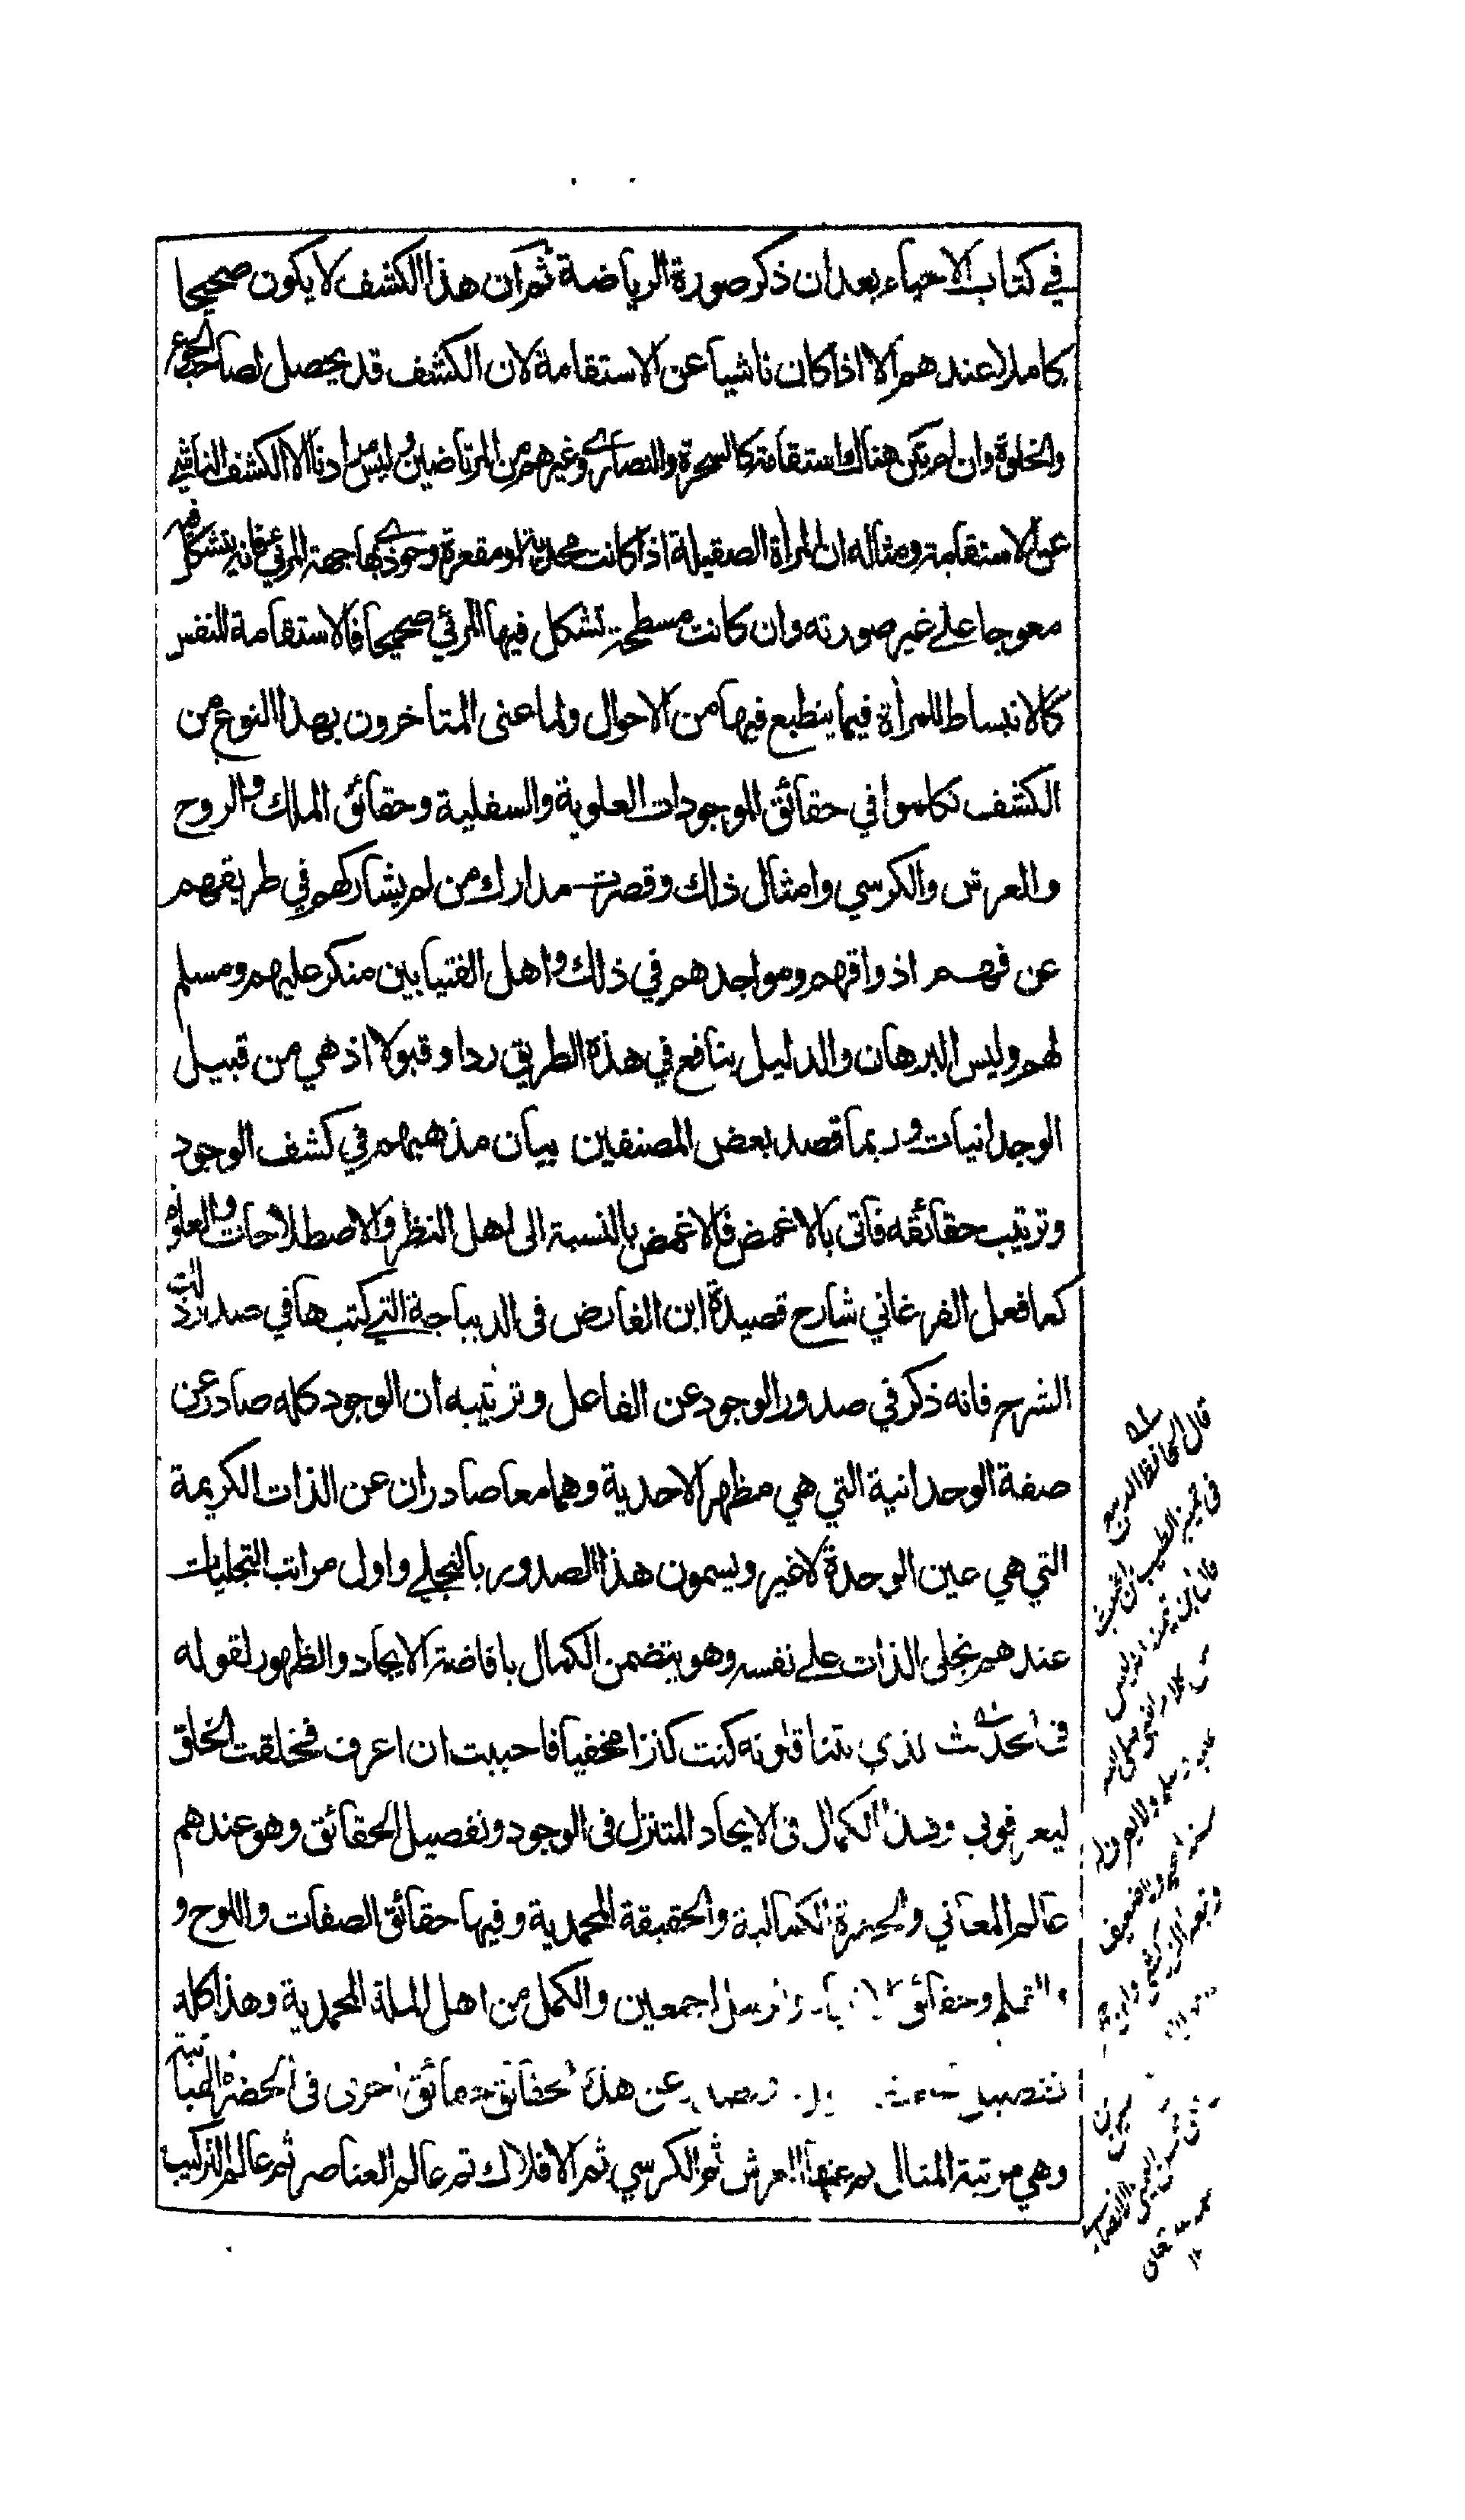 في كتاب الاحياء بعد ان ذكر صورة الرياضة ثم ان هذا الكشف لا يكون صحيحا
كاملا عندهم الا اذا كان ناشيا عن الاستقامة لان الكشف قد يحصل لصاحب الجوع
والخلوة وان لم يكن هناك استقامة كالسحرة والنصارى وغيرهم من المرتاضين وليس مرادنا الا الكشف الناشي
عن الاستقامة ومثاله ان المرأة الصقيلة اذا كانت محدبة او مقعرة وحوذي بها جهة المرئي فانه يتشكل فيه
معوجا على غير صورته وان كانت مسطحة تشكل فيها المرئي صحيحا فالاستقامة للنفس
كالانبساط للمرأة فيما ينطبع فيها من الاحوال ولما عنى المتاخرون بهذا النوع من
الكشف تكلموا في حقائق الموجودات العلوية والسفلية وحقائق الملك والروح
والعرش والكرسي وامثال ذلك وقصرت مدارك من لم يشاركهم في طريقهم
عن فهم اذواقهم ومواجدهم في ذلك واهل الفتيا بين منكر عليهم ومسلم
لهم وليس البرهان والدليل بنافع في هذه الطريق ردا وقبولا اذ هي من قبيل
الوجدانيات وربما قصد بعض المصنفين بيان مذهبهم في كشف الوجود
وترتيب حقائقه فأتى بالاغمض فالاغمض بالنسبة الى اهل النظر والاصطلاحات والعلوم
كما فعل الفرغاني شارح قصيدة ابن الفارض فى الديباجة التي كتبها في صدر ذلك
الشرح فانه ذكر في صدور الوجود عن الفاعل وترتيبه ان الوجود كله صادر عن
صفة الوحدانية التي هي مظهر الاحدية وهما معا صادران عن الذات الكريمة
التي هي عين الوحدة لا غير ويسمون هذا الصدور بالتجلي واول مراتب التجليات
عندهم تجلى الذات على نفسه وهو يتضمن الكمال بافاضة الايجاد والظهور لقوله
فى الحديث الذي يتناقلونه كنت كنزا مخفيا فاحببت ان اعرف فخلقت الخلق
ليعرفوني وهذا الكمال فى الايجاد المتنزل فى الوجود وتفصيل الحقائق وهو عندهم
عالم المعاني والحضرة الكمالية والحقيقة المحمدية وفيها حقائق الصفات واللوح و
والقلم وحقائق الانبياء والرسل اجمعين والكمل من اهل الملة المحمدية وهذا كله
تفصيل عن هذه الحقائق حقائق اخرى فى الحضرة الهبائية
وهي مرتبة المثال ثم عنها العرش ثم الكرسي ثم الافلاك ثم عالم العناصر ثم عالم التركيب
قال الحافظ